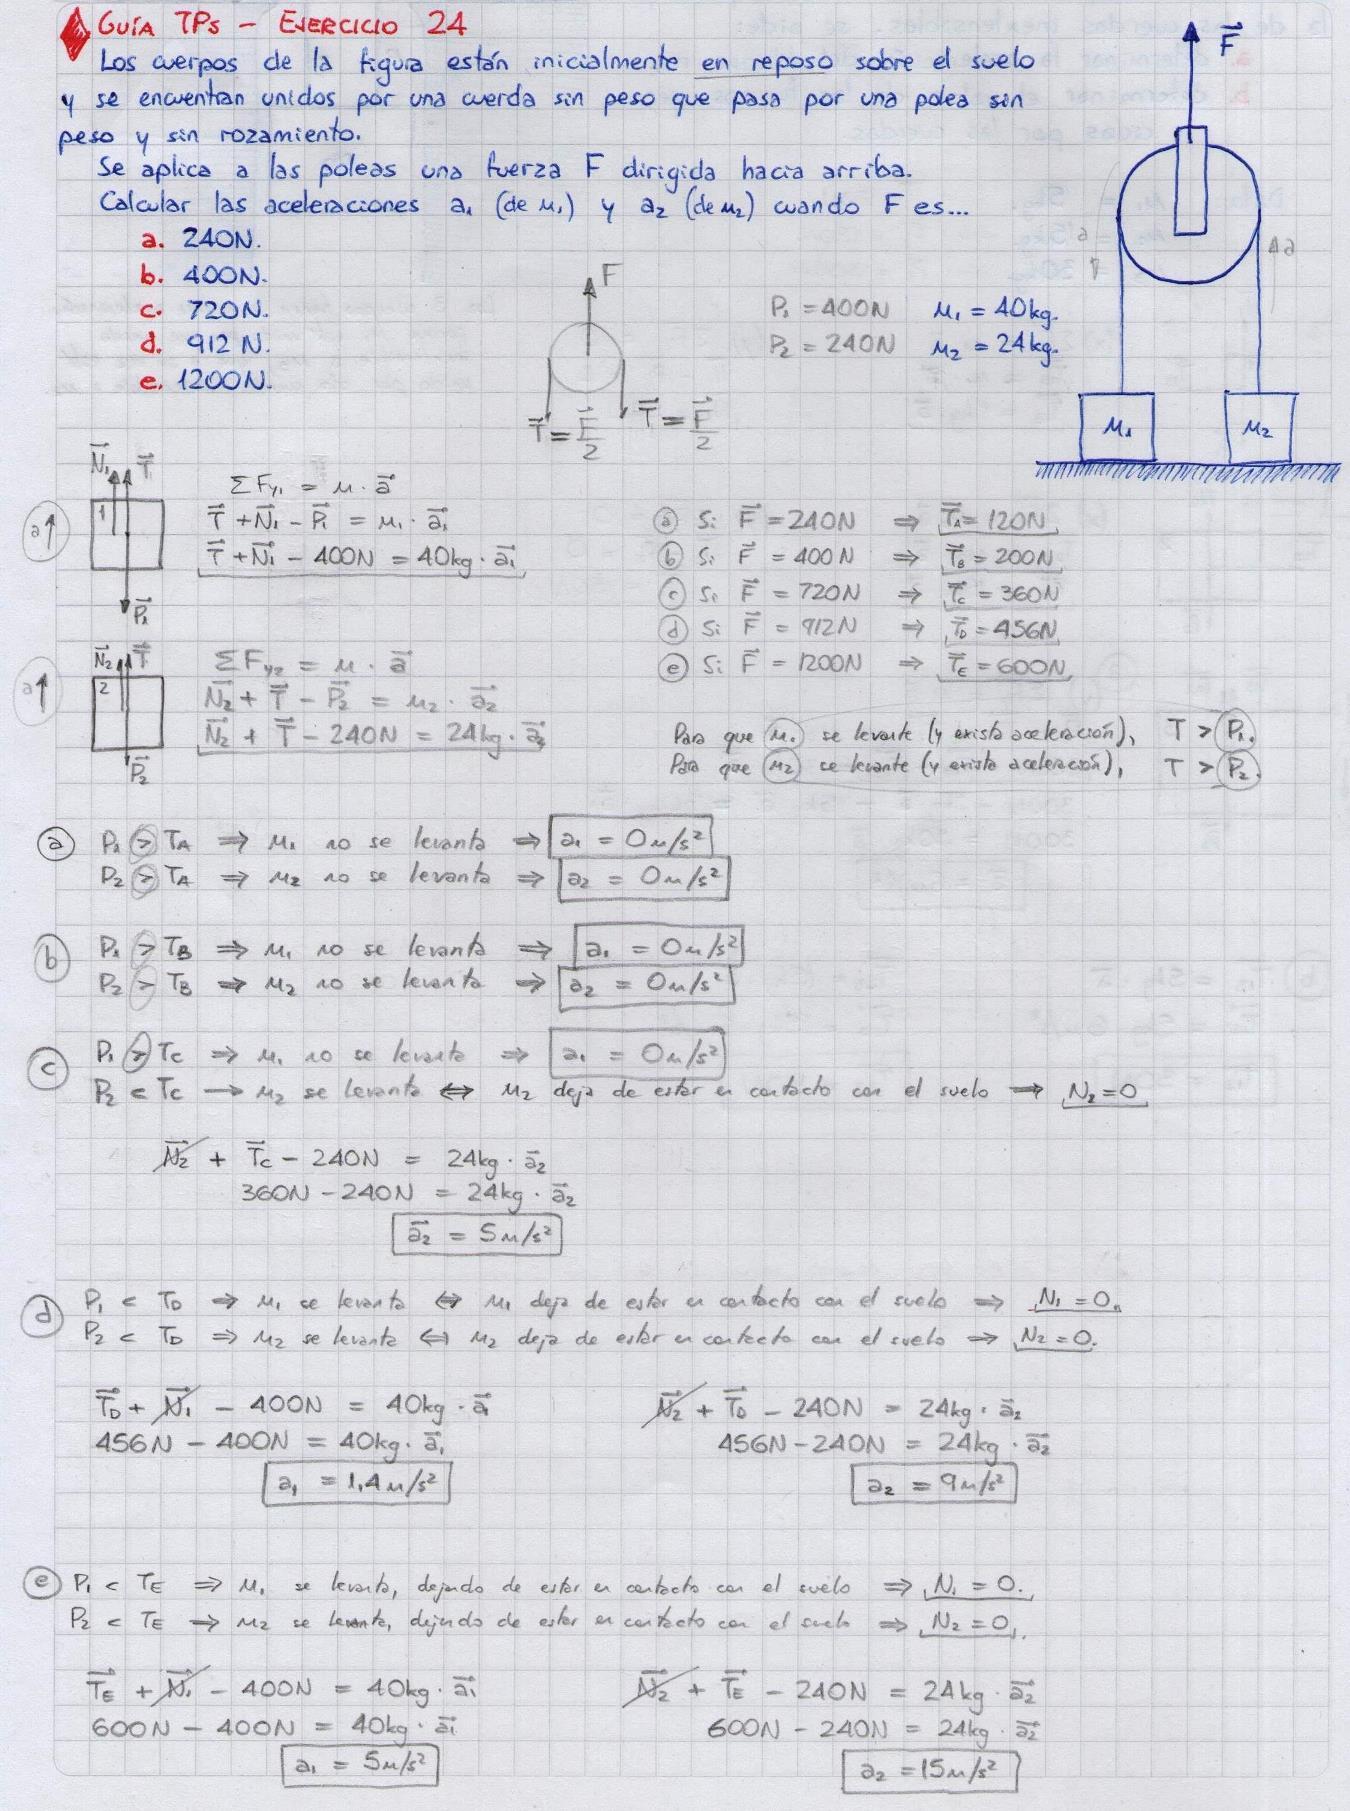 GUÍA TPs - EJERCICIO 24
Los cuerpos de la figura están inicialmente en reposo sobre el suelo
y se encuentran unidos por una cuerda sin peso que pasa por una polea sin
peso y sin rozamiento.
Se aplica a las poleas una fuerza F dirigida hacia arriba.
Calcular las aceleraciones a₁ (de M₁) y a₂ (de M₂) cuando F es...
a. 240N.
b. 400N.
c. 720N.
d. 912 N.
e. 1200N.
F⃗
a
a
F
T⃗ = F⃗/2
T⃗ = F⃗/2
P₁ = 400N M₁ = 40kg.
P₂ = 240N M₂ = 24kg.
M₁ M₂
N⃗₁ T⃗
1
a↑
P⃗₁
ΣFy₁ = M · a⃗
T⃗ + N⃗₁ - P⃗₁ = M₁ · a⃗₁
T⃗ + N⃗₁ - 400N = 40kg · a⃗₁
N⃗₂ T⃗
2
a↑
P⃗₂
ΣFy₂ = M · a⃗
N⃗₂ + T⃗ - P⃗₂ = M₂ · a⃗₂
N⃗₂ + T⃗ - 240N = 24kg · a⃗₂
a Si F⃗ = 240N ⇒ T⃗A = 120N
b Si F⃗ = 400N ⇒ T⃗B = 200N
c Si F⃗ = 720N ⇒ T⃗C = 360N
d Si F⃗ = 912N ⇒ T⃗D = 456N
e Si F⃗ = 1200N ⇒ T⃗E = 600N
Para que M₁ se levante (y exista aceleración), T > P₁.
Para que M₂ se levante (y exista aceleración), T > P₂.
a P₁ > TA ⇒ M₁ no se levanta ⇒ a₁ = 0m/s²
P₂ > TA ⇒ M₂ no se levanta ⇒ a₂ = 0m/s²
b P₁ > TB ⇒ M₁ no se levanta ⇒ a₁ = 0m/s²
P₂ > TB ⇒ M₂ no se levanta ⇒ a₂ = 0m/s²
c P₁ > TC ⇒ M₁ no se levanta ⇒ a₁ = 0m/s²
P₂ < TC → M₂ se levanta ⇔ M₂ deja de estar en contacto con el suelo ⇒ N₂ = 0
N⃗₂ + T⃗C - 240N = 24kg · a⃗₂
360N - 240N = 24kg · a⃗₂
a⃗₂ = 5m/s²
d P₁ < TD ⇒ M₁ se levanta ⇔ M₁ deja de estar en contacto con el suelo ⇒ N₁ = 0.
P₂ < TD ⇒ M₂ se levanta ⇔ M₂ deja de estar en contacto con el suelo ⇒ N₂ = 0.
T⃗D + N⃗₁ - 400N = 40kg · a⃗₁
456N - 400N = 40kg · a⃗₁
a₁ = 1,4m/s²
N⃗₂ + T⃗D - 240N = 24kg · a⃗₂
456N - 240N = 24kg · a⃗₂
a₂ = 9m/s²
e P₁ < TE ⇒ M₁ se levanta, dejando de estar en contacto con el suelo ⇒ N₁ = 0.
P₂ < TE → M₂ se levanta, dejando de estar en contacto con el suelo ⇒ N₂ = 0.
T⃗E + N⃗₁ - 400N = 40kg · a⃗₁
600N - 400N = 40kg · a⃗₁
a₁ = 5m/s²
N⃗₂ + T⃗E - 240N = 24kg · a⃗₂
600N - 240N = 24kg · a⃗₂
a₂ = 15m/s²